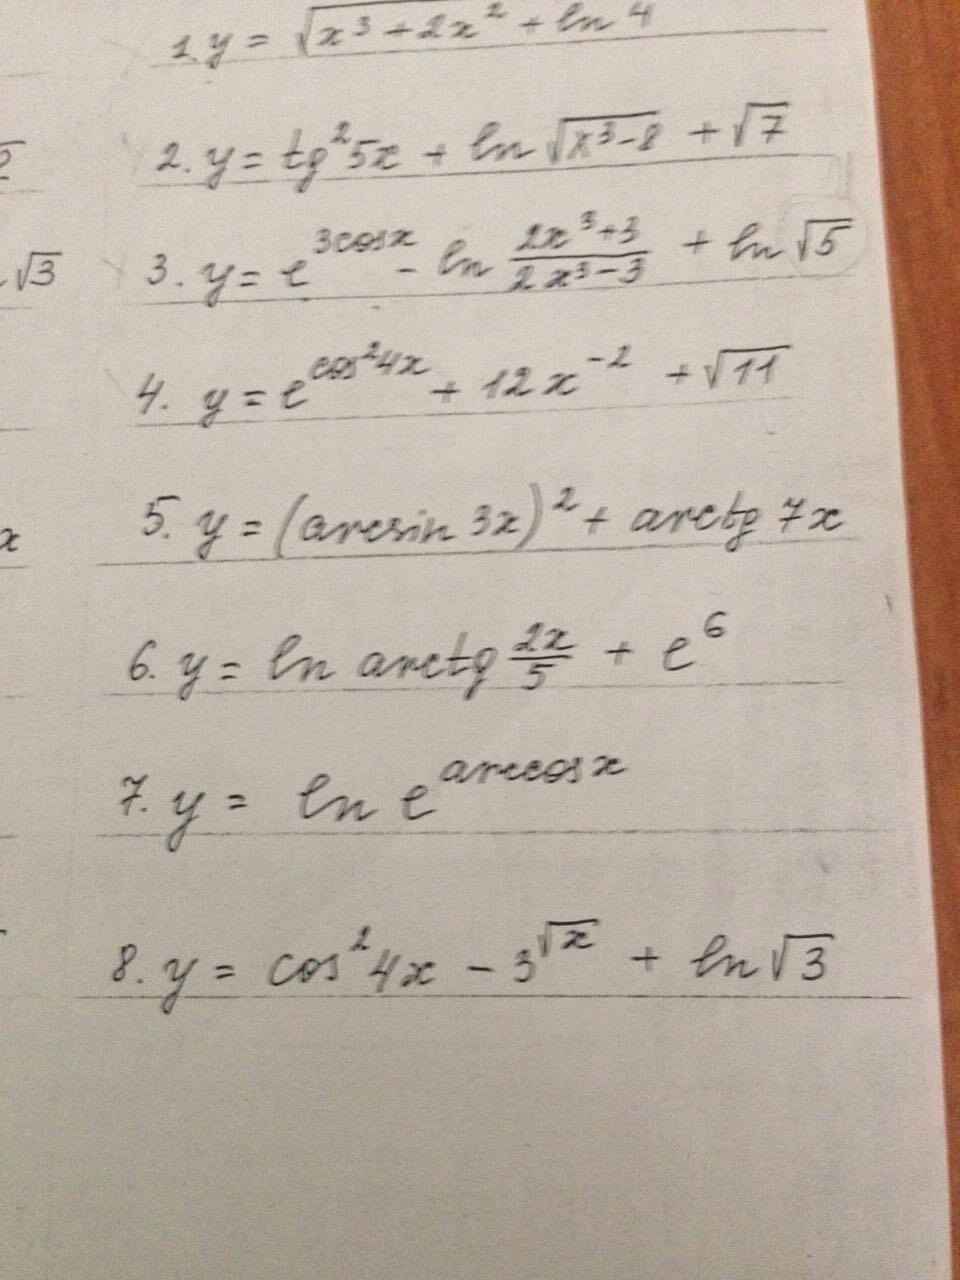 1. y = √(x³ + 2x²) + ln 4
2. y = tg²5x + ln √(x³-8) + √7
√3 3. y = e^(3cosx) - ln (2x³+3)/(2x³-3) + ln √5
4. y = e^(cos²4x) + 12x⁻² + √11
x 5. y = (arcsin 3x)² + arctg 7x
6. y = ln arctg 2x/5 + e⁶
7. y = ln e^(arccosx)
8. y = cos²4x - 3^(√x) + ln √3